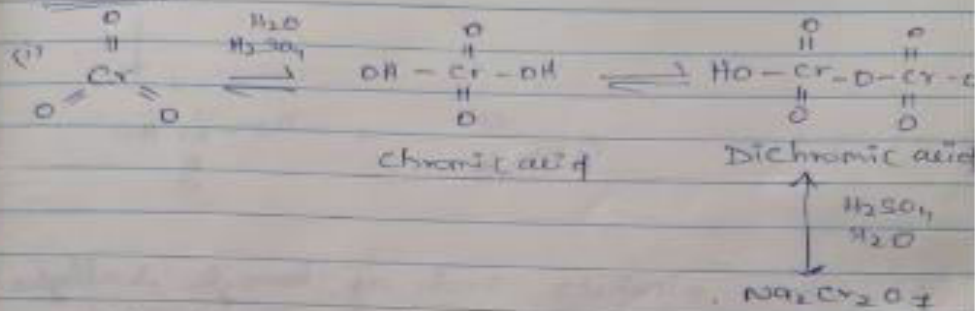 O H₂O O O O
(i) || H₂SO₄ || || ||
Cr ⇌ OH - Cr - OH ⇌ HO - Cr - O - Cr -
O O || || ||
O O O
Chromic acid Dichromic acid
H₂SO₄
H₂O
Na₂Cr₂O₇